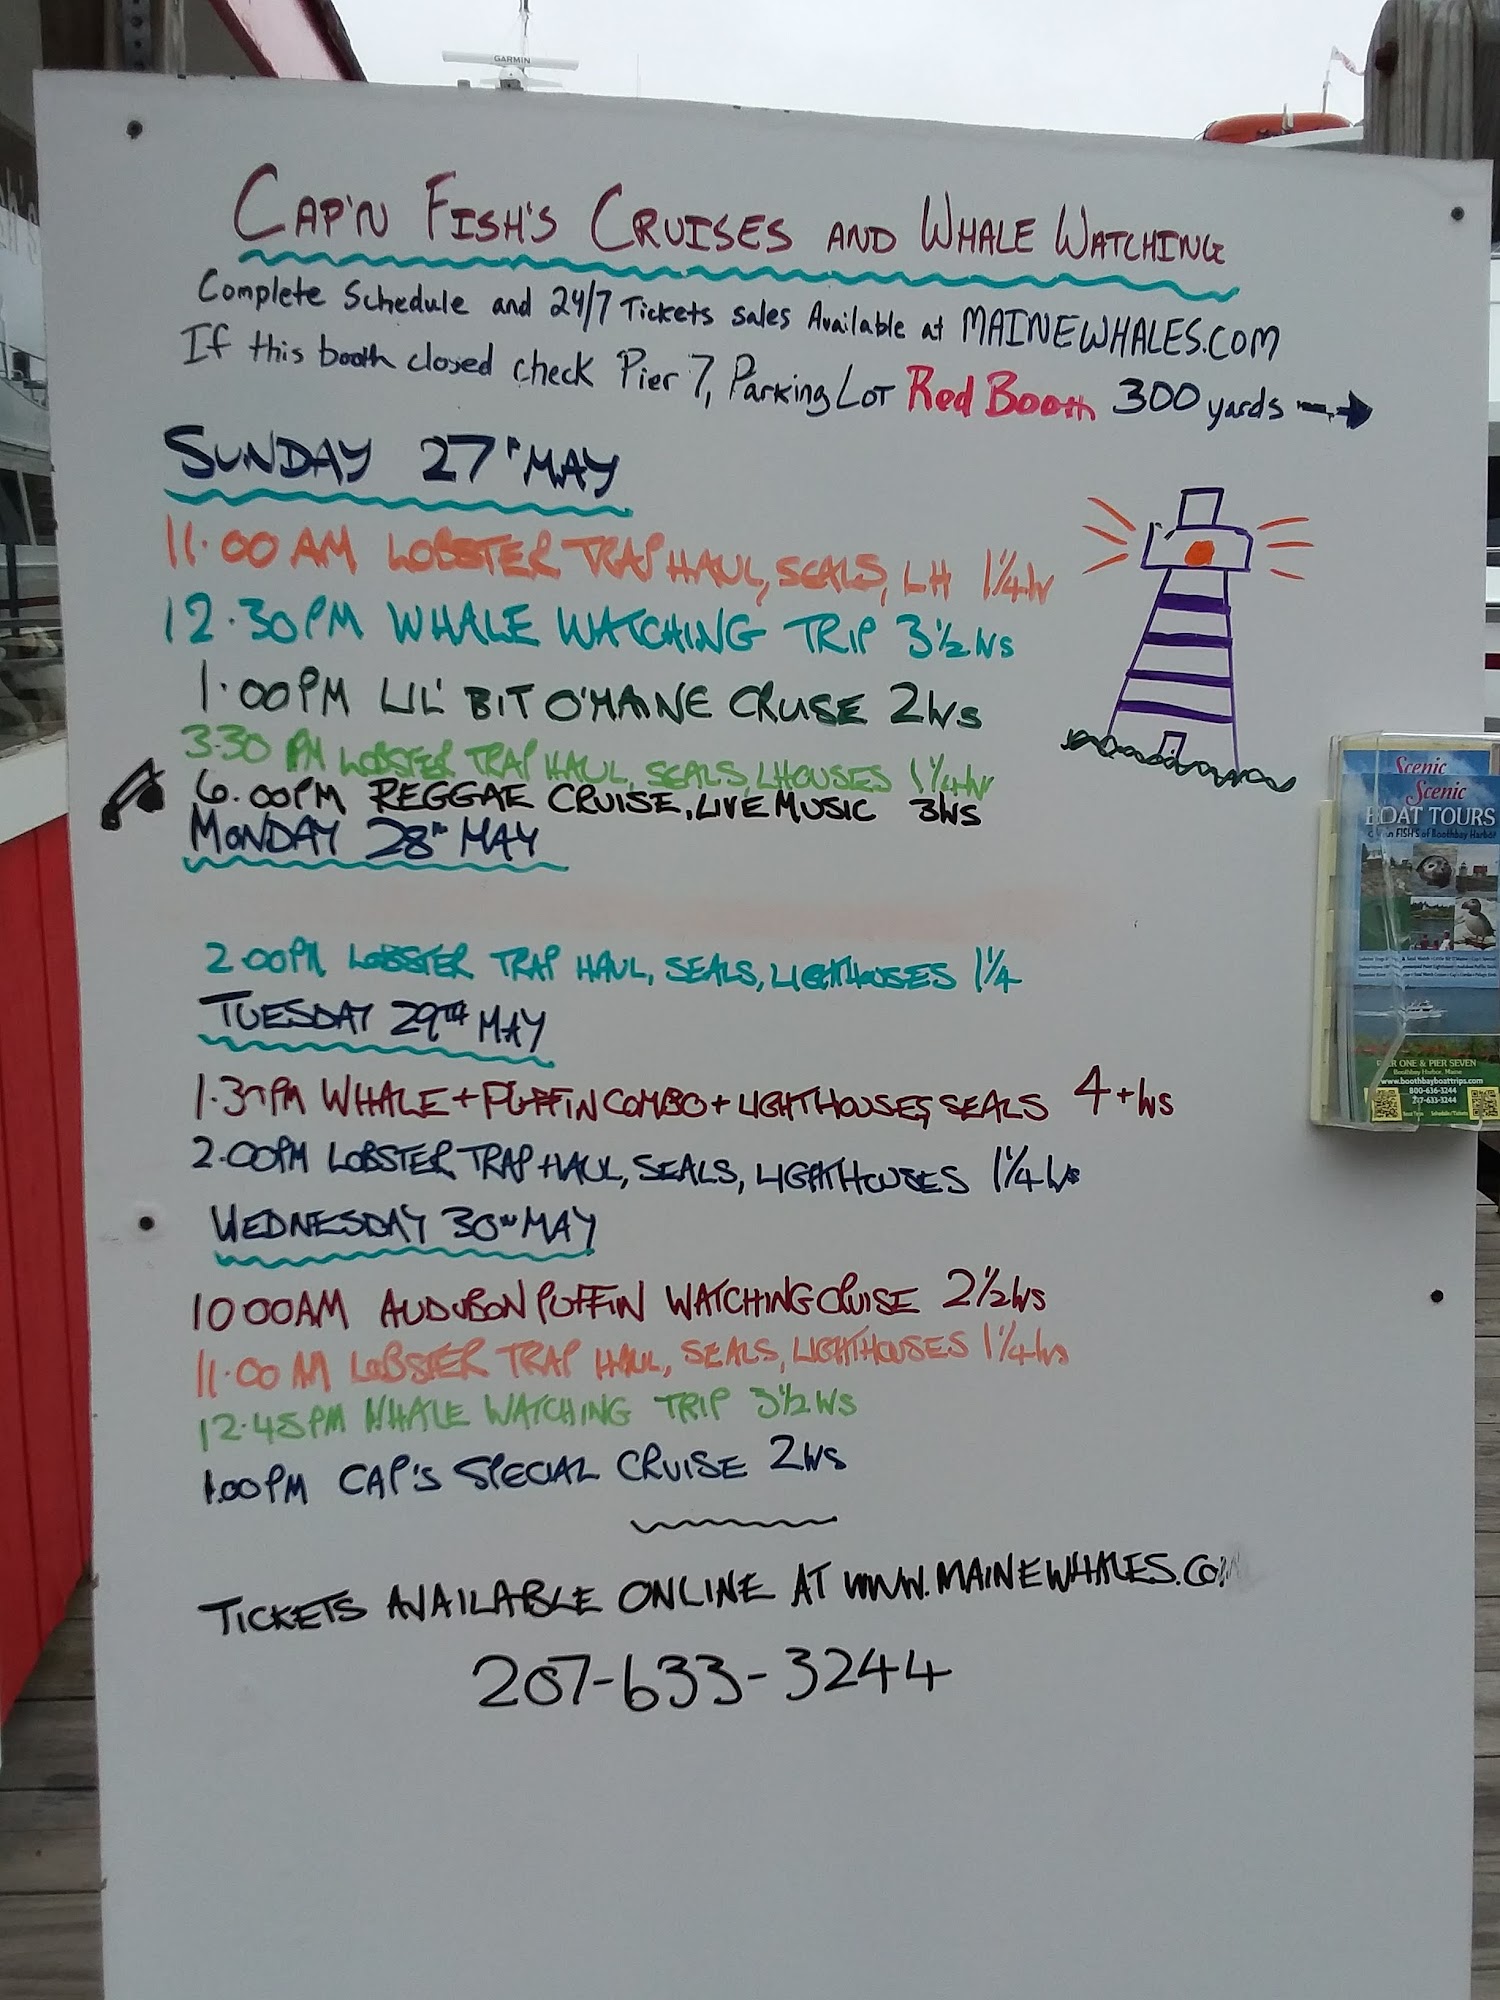 GARMIN
CAP'N FISH'S CRUISES AND WHALE WATCHING
Complete Schedule and 24/7 Tickets sales Available at MAINEWHALES.COM
If this booth closed check Pier 7, Parking Lot Red Booth 300 yards
SUNDAY 27TH MAY
11.00 AM LOBSTER TRAP HAUL, SEALS, LH 1¼ hr
12.30PM WHALE WATCHING TRIP 3½ hrs
1.00PM LIL' BIT O'MAINE CRUSE 2hrs
3.30 PM LOBSTER TRAP HAUL, SEALS, LHOUSES 1¼ hr
6.00PM REGGAE CRUISE, LIVE MUSIC 3hrs
MONDAY 28TH MAY
2.00PM LOBSTER TRAP HAUL, SEALS, LIGHTHOUSES 1¼
TUESDAY 29TH MAY
1.30PM WHALE + PUFFIN COMBO + LIGHTHOUSES, SEALS 4+hrs
2.00PM LOBSTER TRAP HAUL, SEALS, LIGHTHOUSES 1¼ hrs
WEDNESDAY 30TH MAY
10 00AM AUDUBON PUFFIN WATCHING CRUISE 2½ hrs
11.00 AM LOBSTER TRAP HAUL, SEALS, LIGHTHOUSES 1¼ hrs
12.45PM WHALE WATCHING TRIP 3½ hrs
1.00PM CAP'S SPECIAL CRUISE 2hrs
TICKETS AVAILABLE ONLINE AT WWW.MAINEWHALES.COM
207-633-3244
Scenic
Scenic
BOAT TOURS
FISH'S of Boothbay Harbor
PIER ONE & PIER SEVEN
Boothbay Harbor, Maine
www.boothbayboattrips.com
800-636-3244
207-633-3244